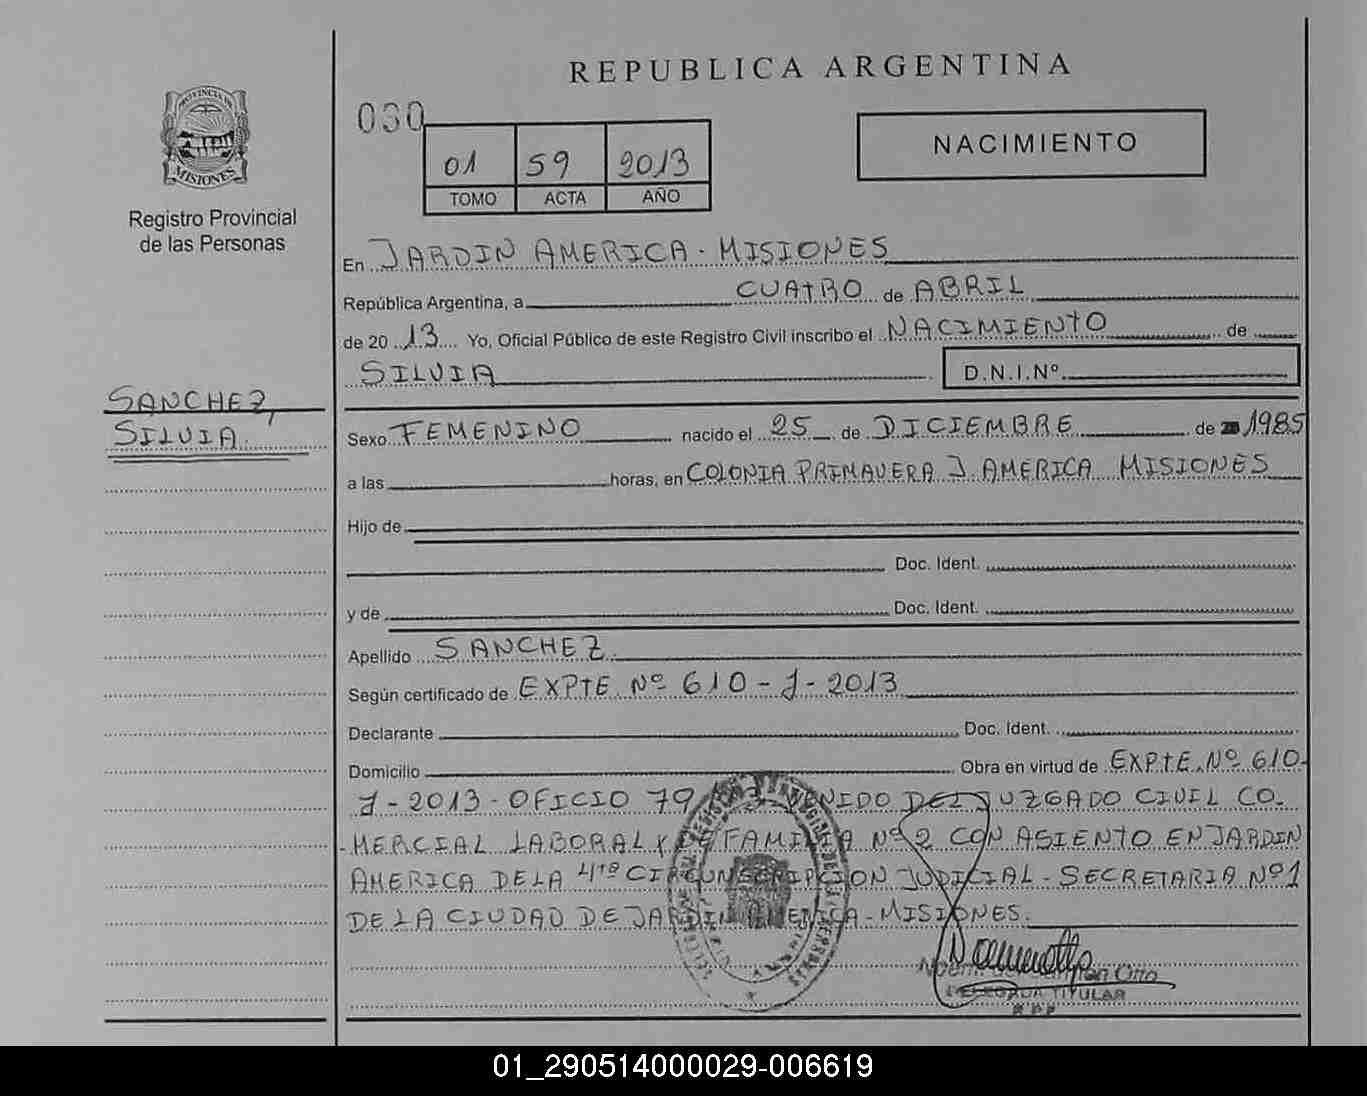 REPUBLICA ARGENTINA
030
NACIMIENTO
01 59 2013
TOMO ACTA AÑO
PROVINCIA DE
MISIONES
Registro Provincial
de las Personas
En JARDIN AMERICA - MISIONES
República Argentina, a CUATRO de ABRIL
de 2013 Yo, Oficial Público de este Registro Civil inscribo el NACIMIENTO de
SILVIA D.N.I.Nº
SANCHEZ,
SILVIA
Sexo FEMENINO nacido el 25 de DICIEMBRE de 1985
a las horas, en COLONIA PRIMAVERA J. AMERICA MISIONES
Hijo de
Doc. Ident.
y de Doc. Ident.
Apellido SANCHEZ
Según certificado de EXPTE Nº 610 - J - 2013
Declarante Doc. Ident.
Domicilio Obra en virtud de EXPTE. Nº 610-
J - 2013 - OFICIO 79 DEL JUZGADO CIVIL CO-
MERCIAL LABORAL Y DE FAMILIA Nº 2 CON ASIENTO EN JARDIN
AMERICA DE LA 4ta CIRCUNSCRIPCION JUDICIAL - SECRETARIA Nº 1
DE LA CIUDAD DE JARDIN AMERICA - MISIONES.
Otto
DELEGADA TITULAR
01_290514000029-006619